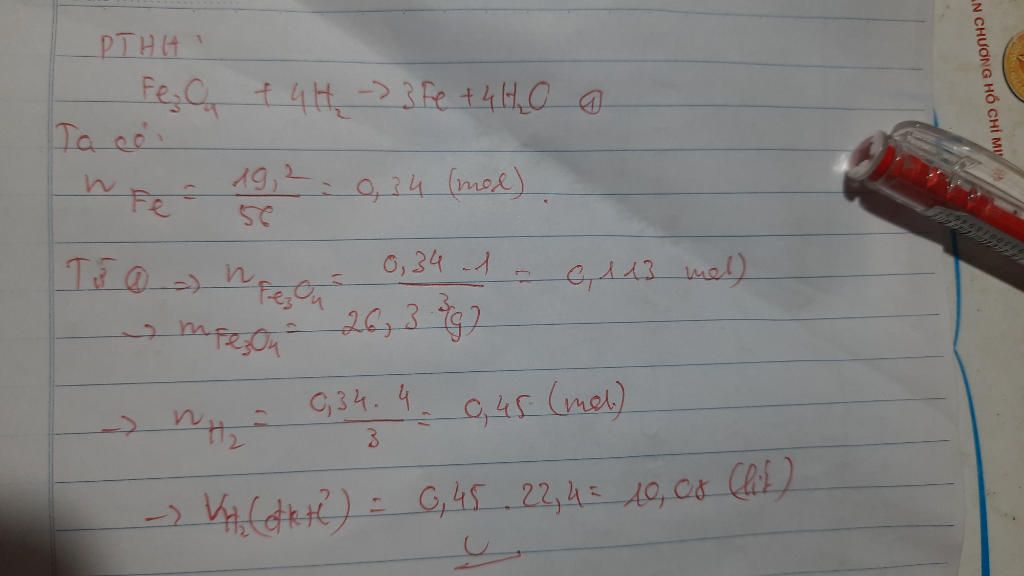 PTHH:
Fe₃O₄ + 4H₂ → 3Fe + 4H₂O ①
Ta có:
n Fe = 19,2 / 56 = 0,34 (mol).
Từ ① => n Fe₃O₄ = 0,34 . 1 / 3 = 0,113 mol)
→ m Fe₃O₄ = 26,3 (g)
→ n H₂ = 0,34 . 4 / 3 = 0,45 (mol)
→ V H₂ (đktc) = 0,45 . 22,4 = 10,08 (lít)
ÂN CHƯƠNG HỒ CHÍ MI